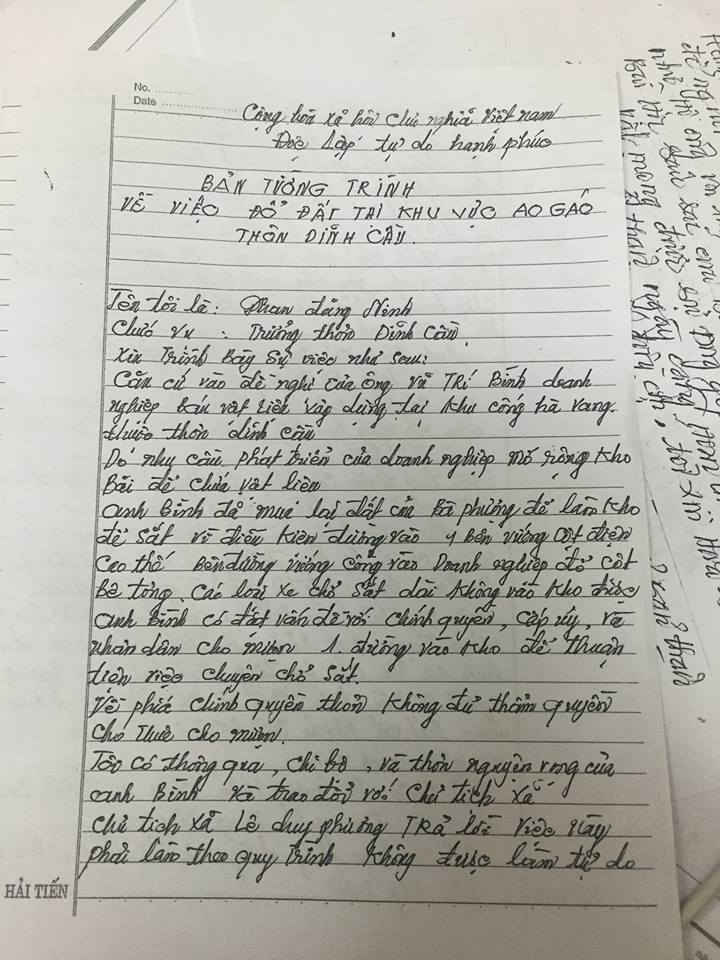 No. ............
Date ............
Cộng hòa xã hội chủ nghĩa việt nam
Độc lập tự do hạnh phúc
BẢN TƯỜNG TRÌNH
VỀ VIỆC ĐỔ ĐẤT TẠI KHU VỰC AO GẠO
THÔN ĐINH CẦU.
Tên tôi là: Phan đăng Ninh
Chức vụ : Trưởng thôn Đinh Cầu
Xin Trình Bày Sự việc như sau:
Căn cứ vào đề nghị của ông vũ TRí Bình doanh
nghiệp bán vật liệu xây dựng tại khu cống hà vang.
thuộc thôn đinh cầu
Do nhu cầu phát triển của doanh nghiệp mở rộng kho
Bãi để chứa vật liệu
anh Bình đã mua lại đất của Bà phượng để làm kho
để sắt vì điều kiện đường vào 1 bên vướng cột điện
Cao thế Bên đường vướng cổng vào Doanh nghiệp đổ cột
bê tông. Các loại xe chở sắt dài không vào kho được
anh Bình có đặt vấn đề với chính quyền, cấp ủy, và
nhân dân cho mượn 1. đường vào kho để thuận
tiện việc chuyên chở sắt.
Về phía chính quyền thôn không đủ thẩm quyền
cho thuê cho mượn.
Tôi có thông qua, chi bộ, và thôn nguyện vọng của
anh Bình và trao đổi với chủ tịch xã
chủ tịch xã Lê duy phương TRả lời việc này
phải làm theo quy trình không được làm tự do
HẢI TIẾN